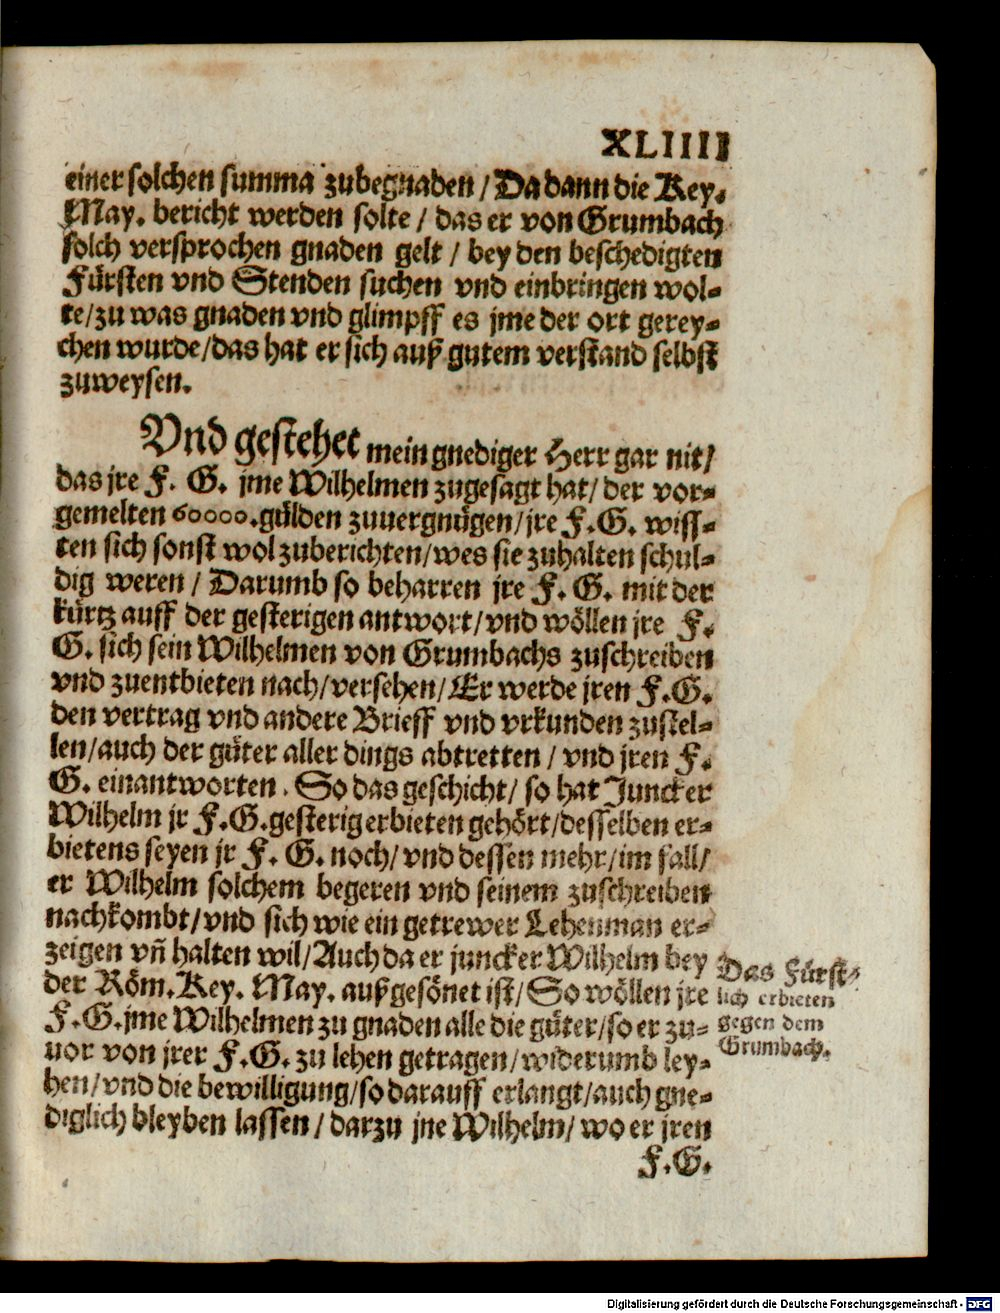 XLIIII
einer solchen summa zubegnaden / Da dann die Key.
May. bericht werden solte / das er von Grumbach
solch versprochen gnaden gelt / bey den beschedigten
Fürsten vnd Stenden suchen vnd einbringen wol-
te/zu was gnaden vnd glimpff es jme der ort gerey-
chen wurde/das hat er sich auß gutem verstand selbst
zuweysen.
Vnd gestehet mein gnediger Herr gar nit/
das jre F. G. jme Wilhelmen zugesagt hat/ der vor-
gemelten 60000.gülden zuuergnügen/jre F.G. wiss-
ten sich sonst wol zuberichten/wes sie zuhalten schul-
dig weren / Darumb so beharren jre F. G. mit der
kürtz auff der gesterigen antwort/vnd wöllen jre F.
G. sich sein Wilhelmen von Grumbachs zuschreiben
vnd zuentbieten nach/versehen/Er werde jren F.G.
den vertrag vnd andere Brieff vnd vrkunden zustel-
len/auch der güter aller dings abtretten / vnd jren F.
G. einantworten . So das geschicht/ so hat Juncker
Wilhelm jr F.G.gesterig erbieten gehört/desselben er-
bietens seyen jr F. G. noch/ vnd dessen mehr/im fall/
er Wilhelm solchem begeren vnd seinem zuschreiben
nachkombt/vnd sich wie ein getrewer Lehenman er-
zeigen vñ halten wil/Auch da er juncker Wilhelm bey
der Röm.Key. May. außgesönet ist/So wöllen jre
F.G.jme Wilhelmen zu gnaden alle die güter/so er zu-
uor von jrer F.G. zu lehen getragen/widerumb ley-
hen/vnd die bewilligung/so darauff erlangt/auch gne-
diglich bleyben lassen / darzu jne Wilhelm/ wo er jren
F.G.
Das Fürst-
lich erbieten
gegen dem
Grumbach.
Digitalisierung gefördert durch die Deutsche Forschungsgemeinschaft - DFG